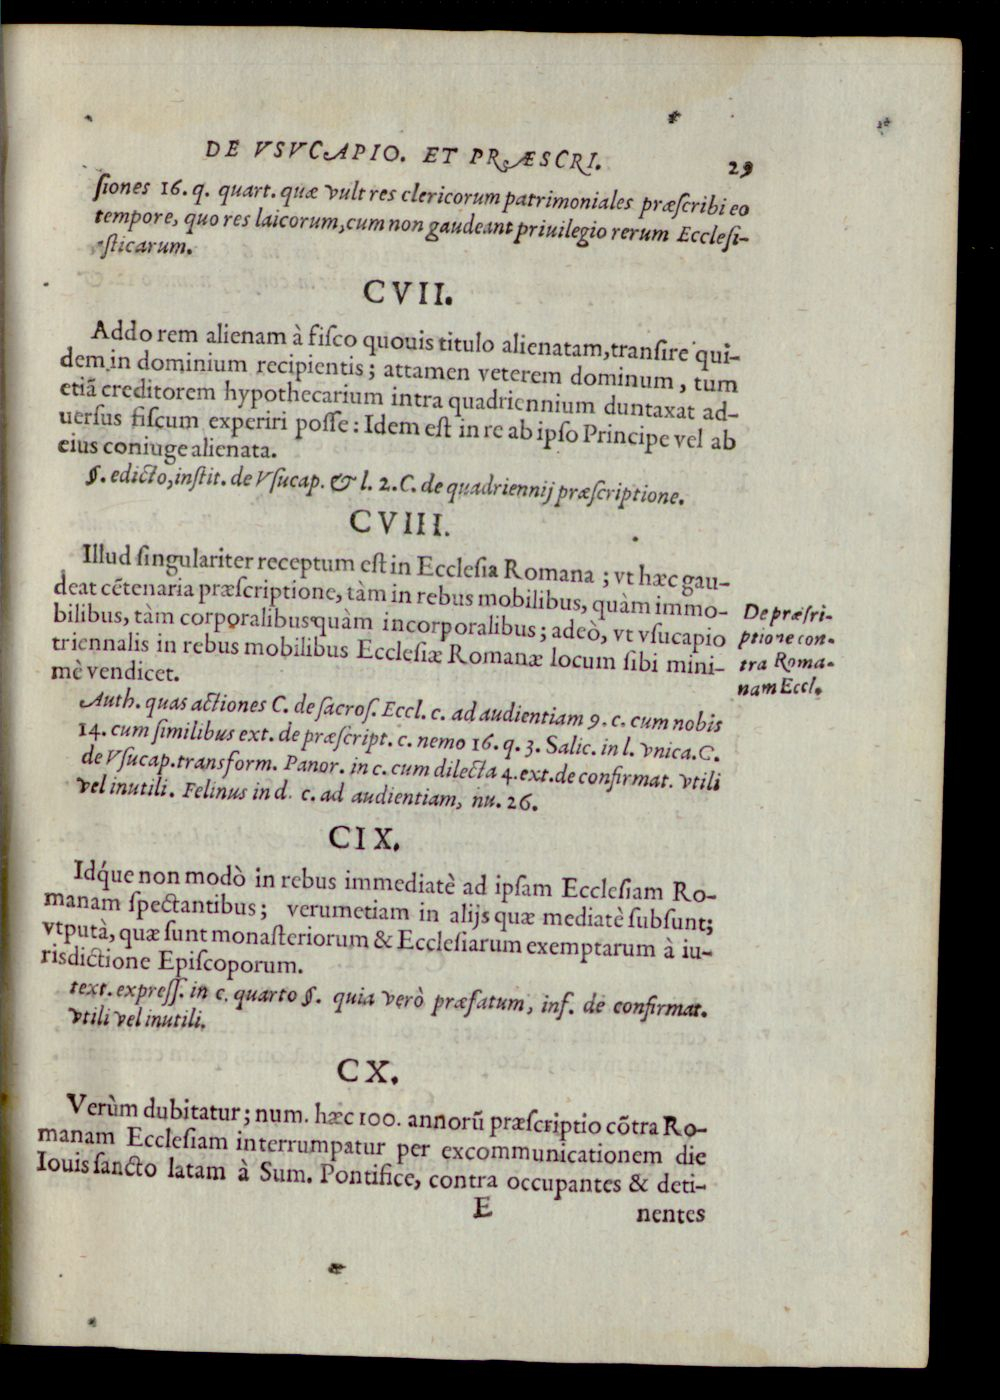 DE VSVCAPIO. ET PRÆSCRI. 29
ſiones 16. q. quart. quæ vult res clericorum patrimoniales præſcribi eo
tempore, quo res laicorum, cum non gaudeant priuilegio rerum Eccleſi-
aſticarum.
CVII.
Addo rem alienam à fiſco quouis titulo alienatam, tranſire qui-
dem in dominium recipientis; attamen veterem dominum, tum
etiã creditorem hypothecarium intra quadriennium duntaxat ad-
uerſus fiſcum experiri poſſe: Idem eſt in re ab ipſo Principe vel ab
eius coniuge alienata.
§. edicto, inſtit. de Vſucap. & l. 2. C. de quadriennij præſcriptione.
CVIII.
Illud ſingulariter receptum eſt in Eccleſia Romana; vt hæc gau-
deat cẽtenaria præſcriptione, tàm in rebus mobilibus, quàm immo-
bilibus, tàm corporalibus quàm incorporalibus; adeò, vt vſucapio
triennalis in rebus mobilibus Eccleſiæ Romanæ locum ſibi mini-
mè vendicet.
De præſri-
ptione con-
tra Roma-
nam Eccl.
Auth. quas actiones C. de ſacroſ. Eccl. c. ad audientiam 9. c. cum nobis
14. cum ſimilibus ext. de præſcript. c. nemo 16. q. 3. Salic. in l. vnica. C.
de Vſucap. transform. Panor. in c. cum dilecta 4. ext. de confirmat. vtili
vel inutili. Felinus in d. c. ad audientiam, nu. 26.
CIX.
Idq́ue non modò in rebus immediatè ad ipſam Eccleſiam Ro-
manam ſpectantibus; verumetiam in alijs quæ mediatè ſubſunt;
vtputà, quæ ſunt monaſteriorum & Eccleſiarum exemptarum à iu-
risdictione Epiſcoporum.
text. expreſſ. in c. quarto §. quia verò præfatum, inf. de confirmat.
vtili vel inutili.
CX.
Verùm dubitatur; num. hæc 100. annorũ præſcriptio cõtra Ro-
manam Eccleſiam interrumpatur per excommunicationem die
Iouis ſancto latam à Sum. Pontifice, contra occupantes & deti-
E nentes